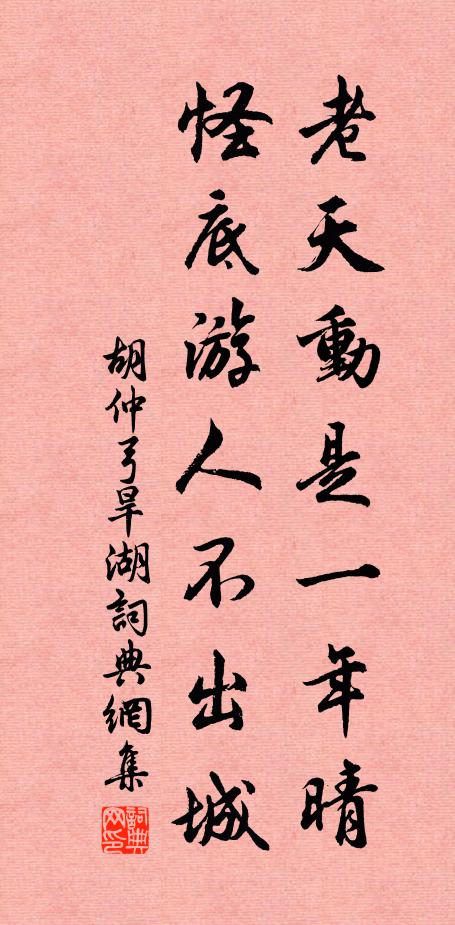 老天動是一年晴
怪底游人不出城
胡仲弓旱湖詞典網集
詞典网印